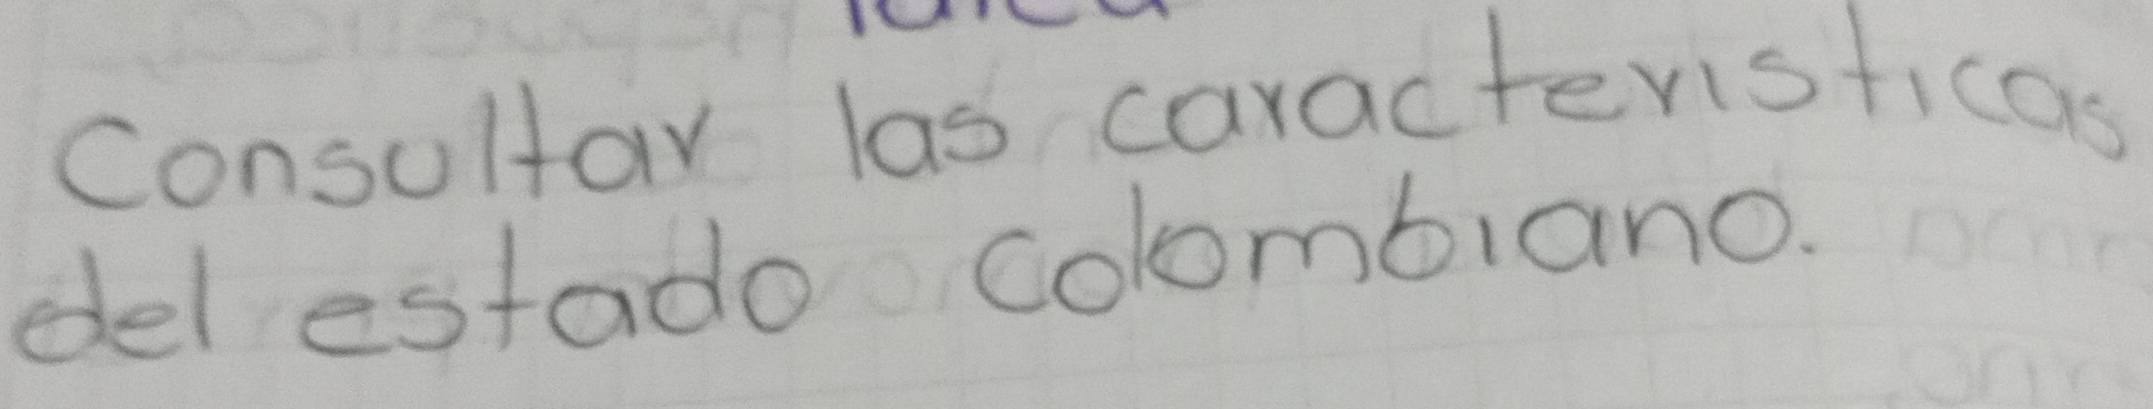 Consultar las caracteristicas
del estado colombiano.